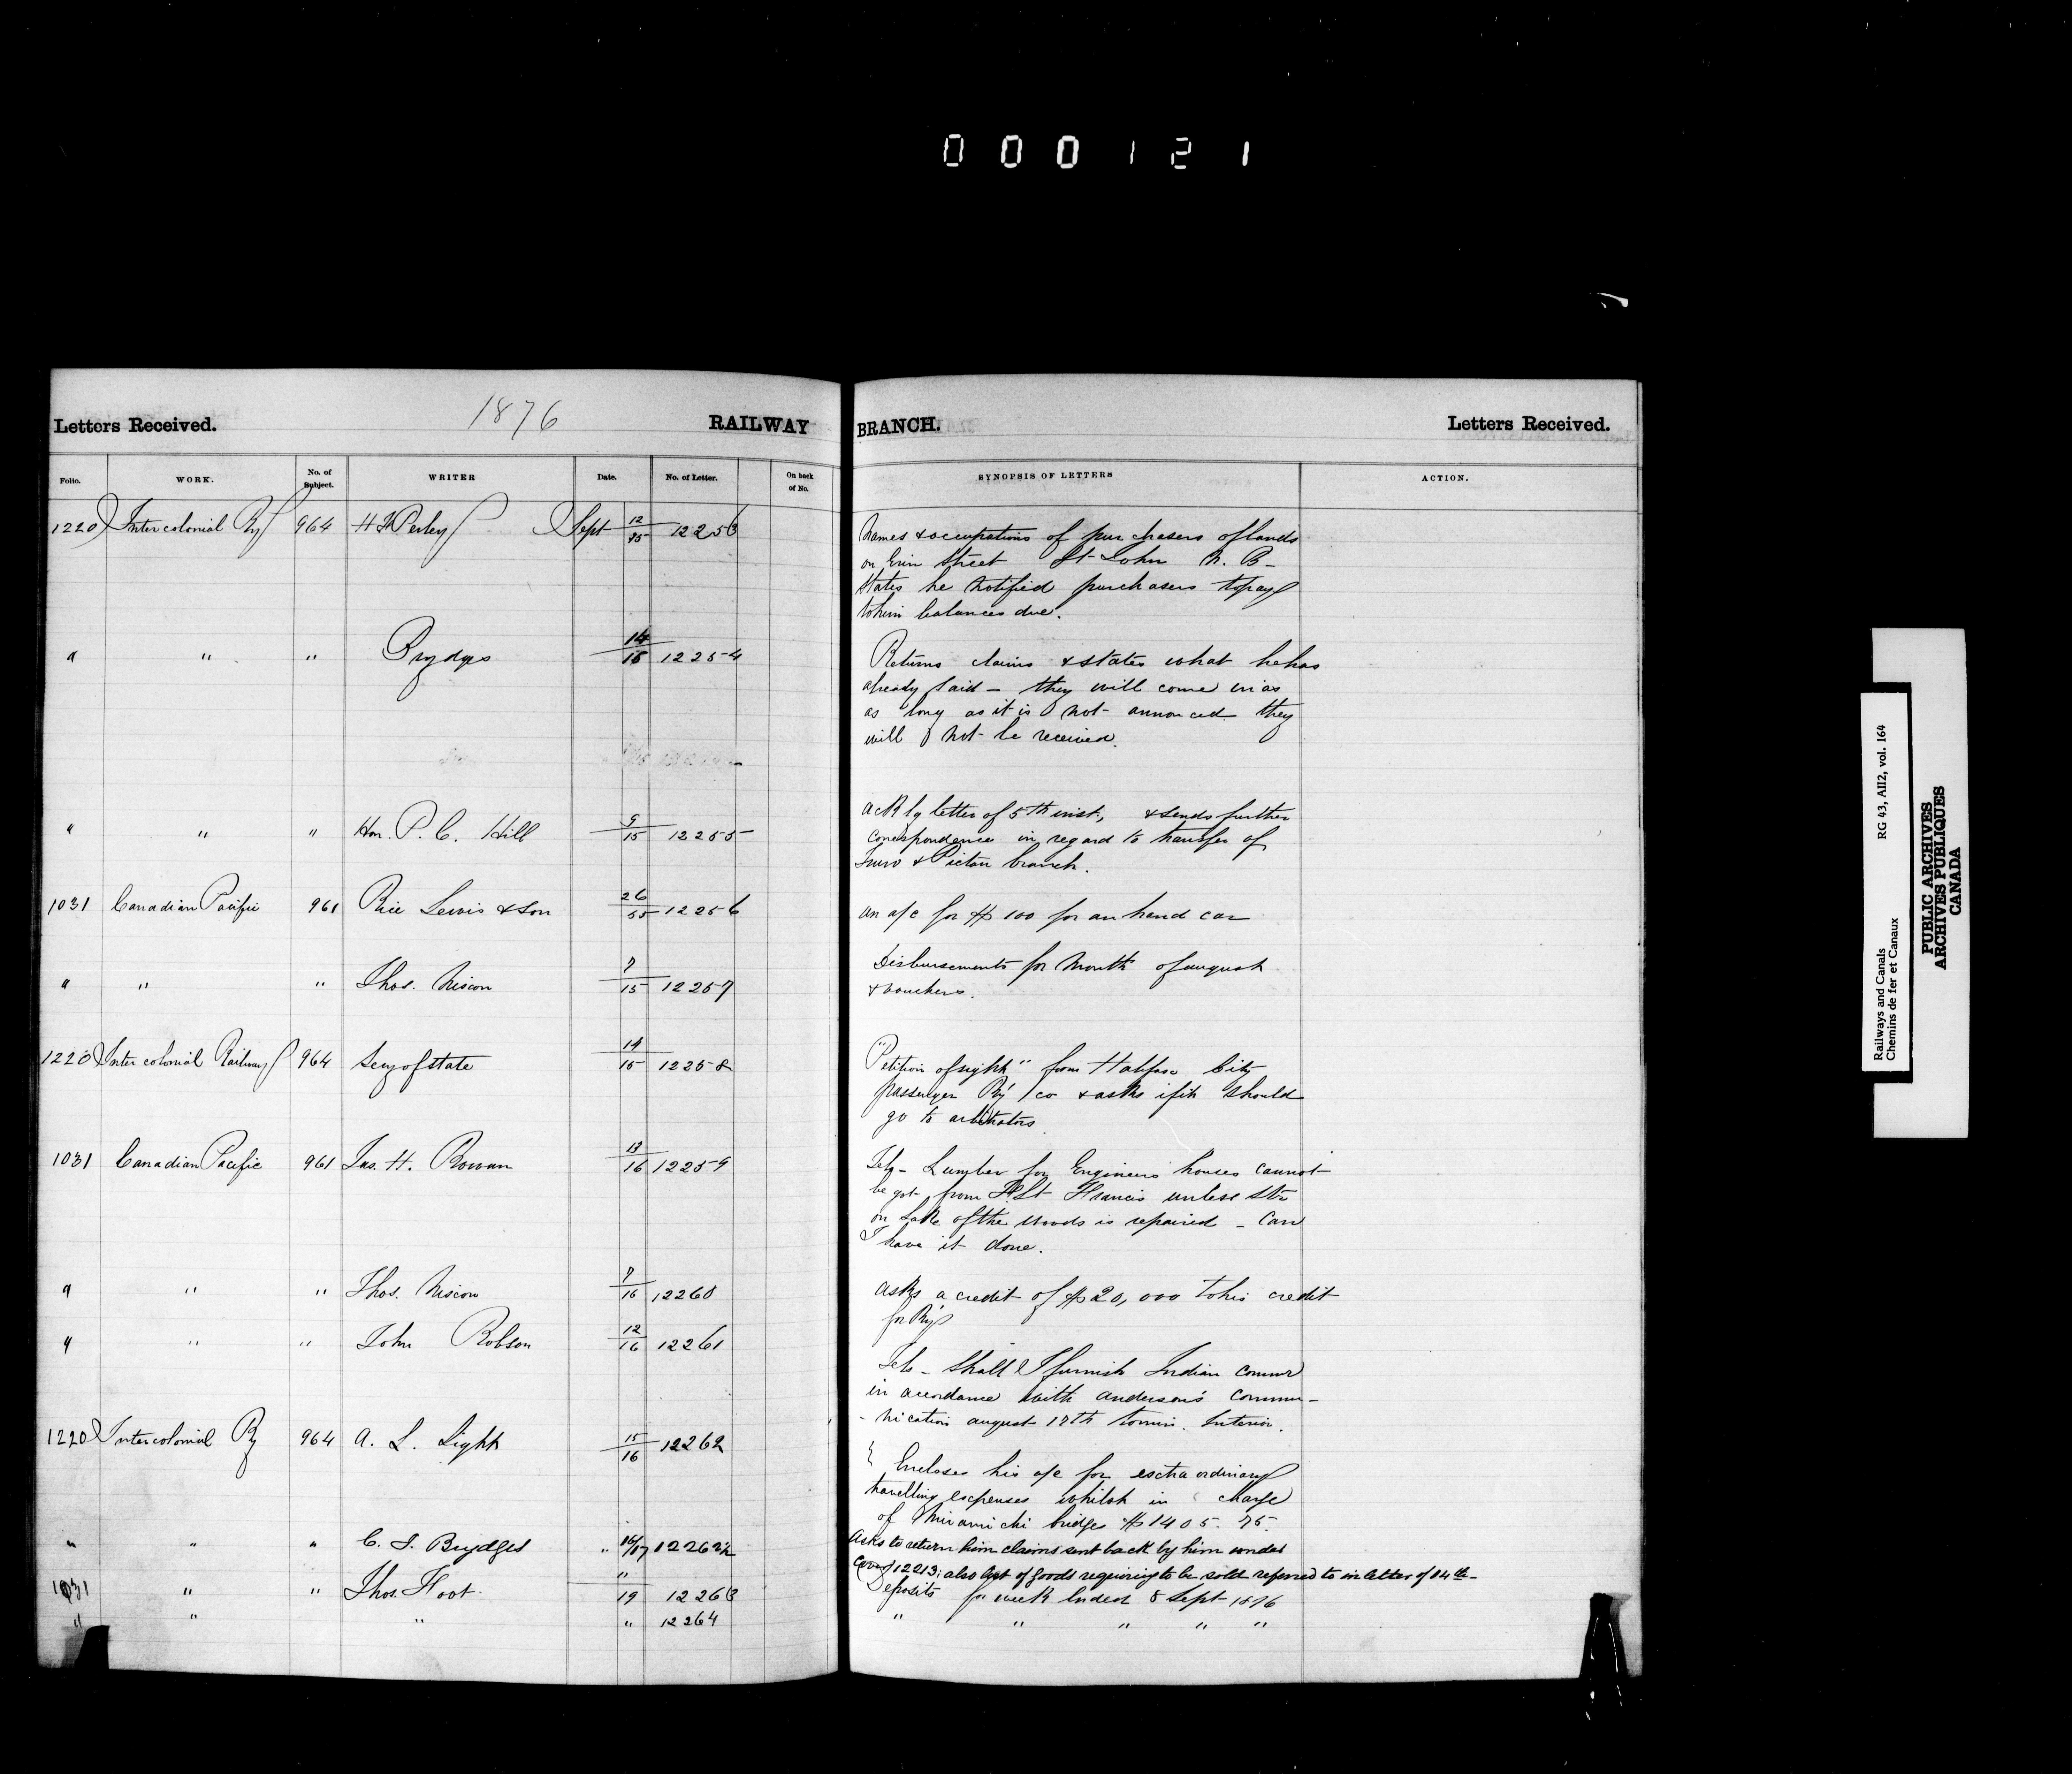 000121
Letters Received. 1876 RAILWAY BRANCH. Letters Received.
Folio. WORK. No. of Subject. WRITER Date. No. of Letter. On back of No. SYNOPSIS OF LETTERS ACTION.
1220 Intercolonial Ry 964 H F Perley Sept 12/15 12253
Names & occupations of purchasers of lands
on Erin Street St John N. B-
States he notified purchasers to pay
to him balances due.
" " " Brydges 14/15 12254
Returns claims & states what he has
already said - they will come in as
as long as it is not announced they
will not be received.
" " " Hon. P. C. Hill 9/15 12255
ackg letter of 5th inst, & sends further
correspondence in regard to transfer of
Truro & Pictou branch.
1031 Canadian Pacific 961 Rice Lewis & Son 26/15 12256
an a/c for $100 for an hand car
" " " Thos. Nixon 7/15 12257
Disbursements for Month of august
& vouchers.
1220 Intercolonial Railway 964 Secy of state 14/15 12258
"Petition of right" from Halifax City
passenger Ry co & asks if it should
go to arbitrators
1031 Canadian Pacific 961 Jas. H. Rowan 13/16 12259
Tel - Lumber for Engineers houses cannot
be got from Ft St Francis unless Str
on Lake of the Woods is repaired - Can
I have it done.
" " " Thos. Nixon 7/16 12260
asks a credit of $20,000 to his credit
for Ry
" " " John Robson 12/16 12261
Tel - Shall I furnish Indian Commr
in accordance with anderson's Commu-
-nication august 17th to min. Interior.
1220 Intercolonial Ry 964 A. L. Light 15/16 12262
Encloses his a/c for extra ordinary
travelling expenses whilst in charge
of Miramichi bridges $1405.75.
" " " C. J. Brydges " 16/17 12262½
Asks to return him claims sent back by him under
Cover 12213; also of goods requiring to be sold referred to in letter of 14th-
1031 " " Thos. Foot " 19 12263
Deposits for week ended 8 Sept 1876
" " " " 12264
" " " " "
Railways and Canals RG 43, AII2, vol. 164
Chemins de fer et Canaux
PUBLIC ARCHIVES
ARCHIVES PUBLIQUES
CANADA